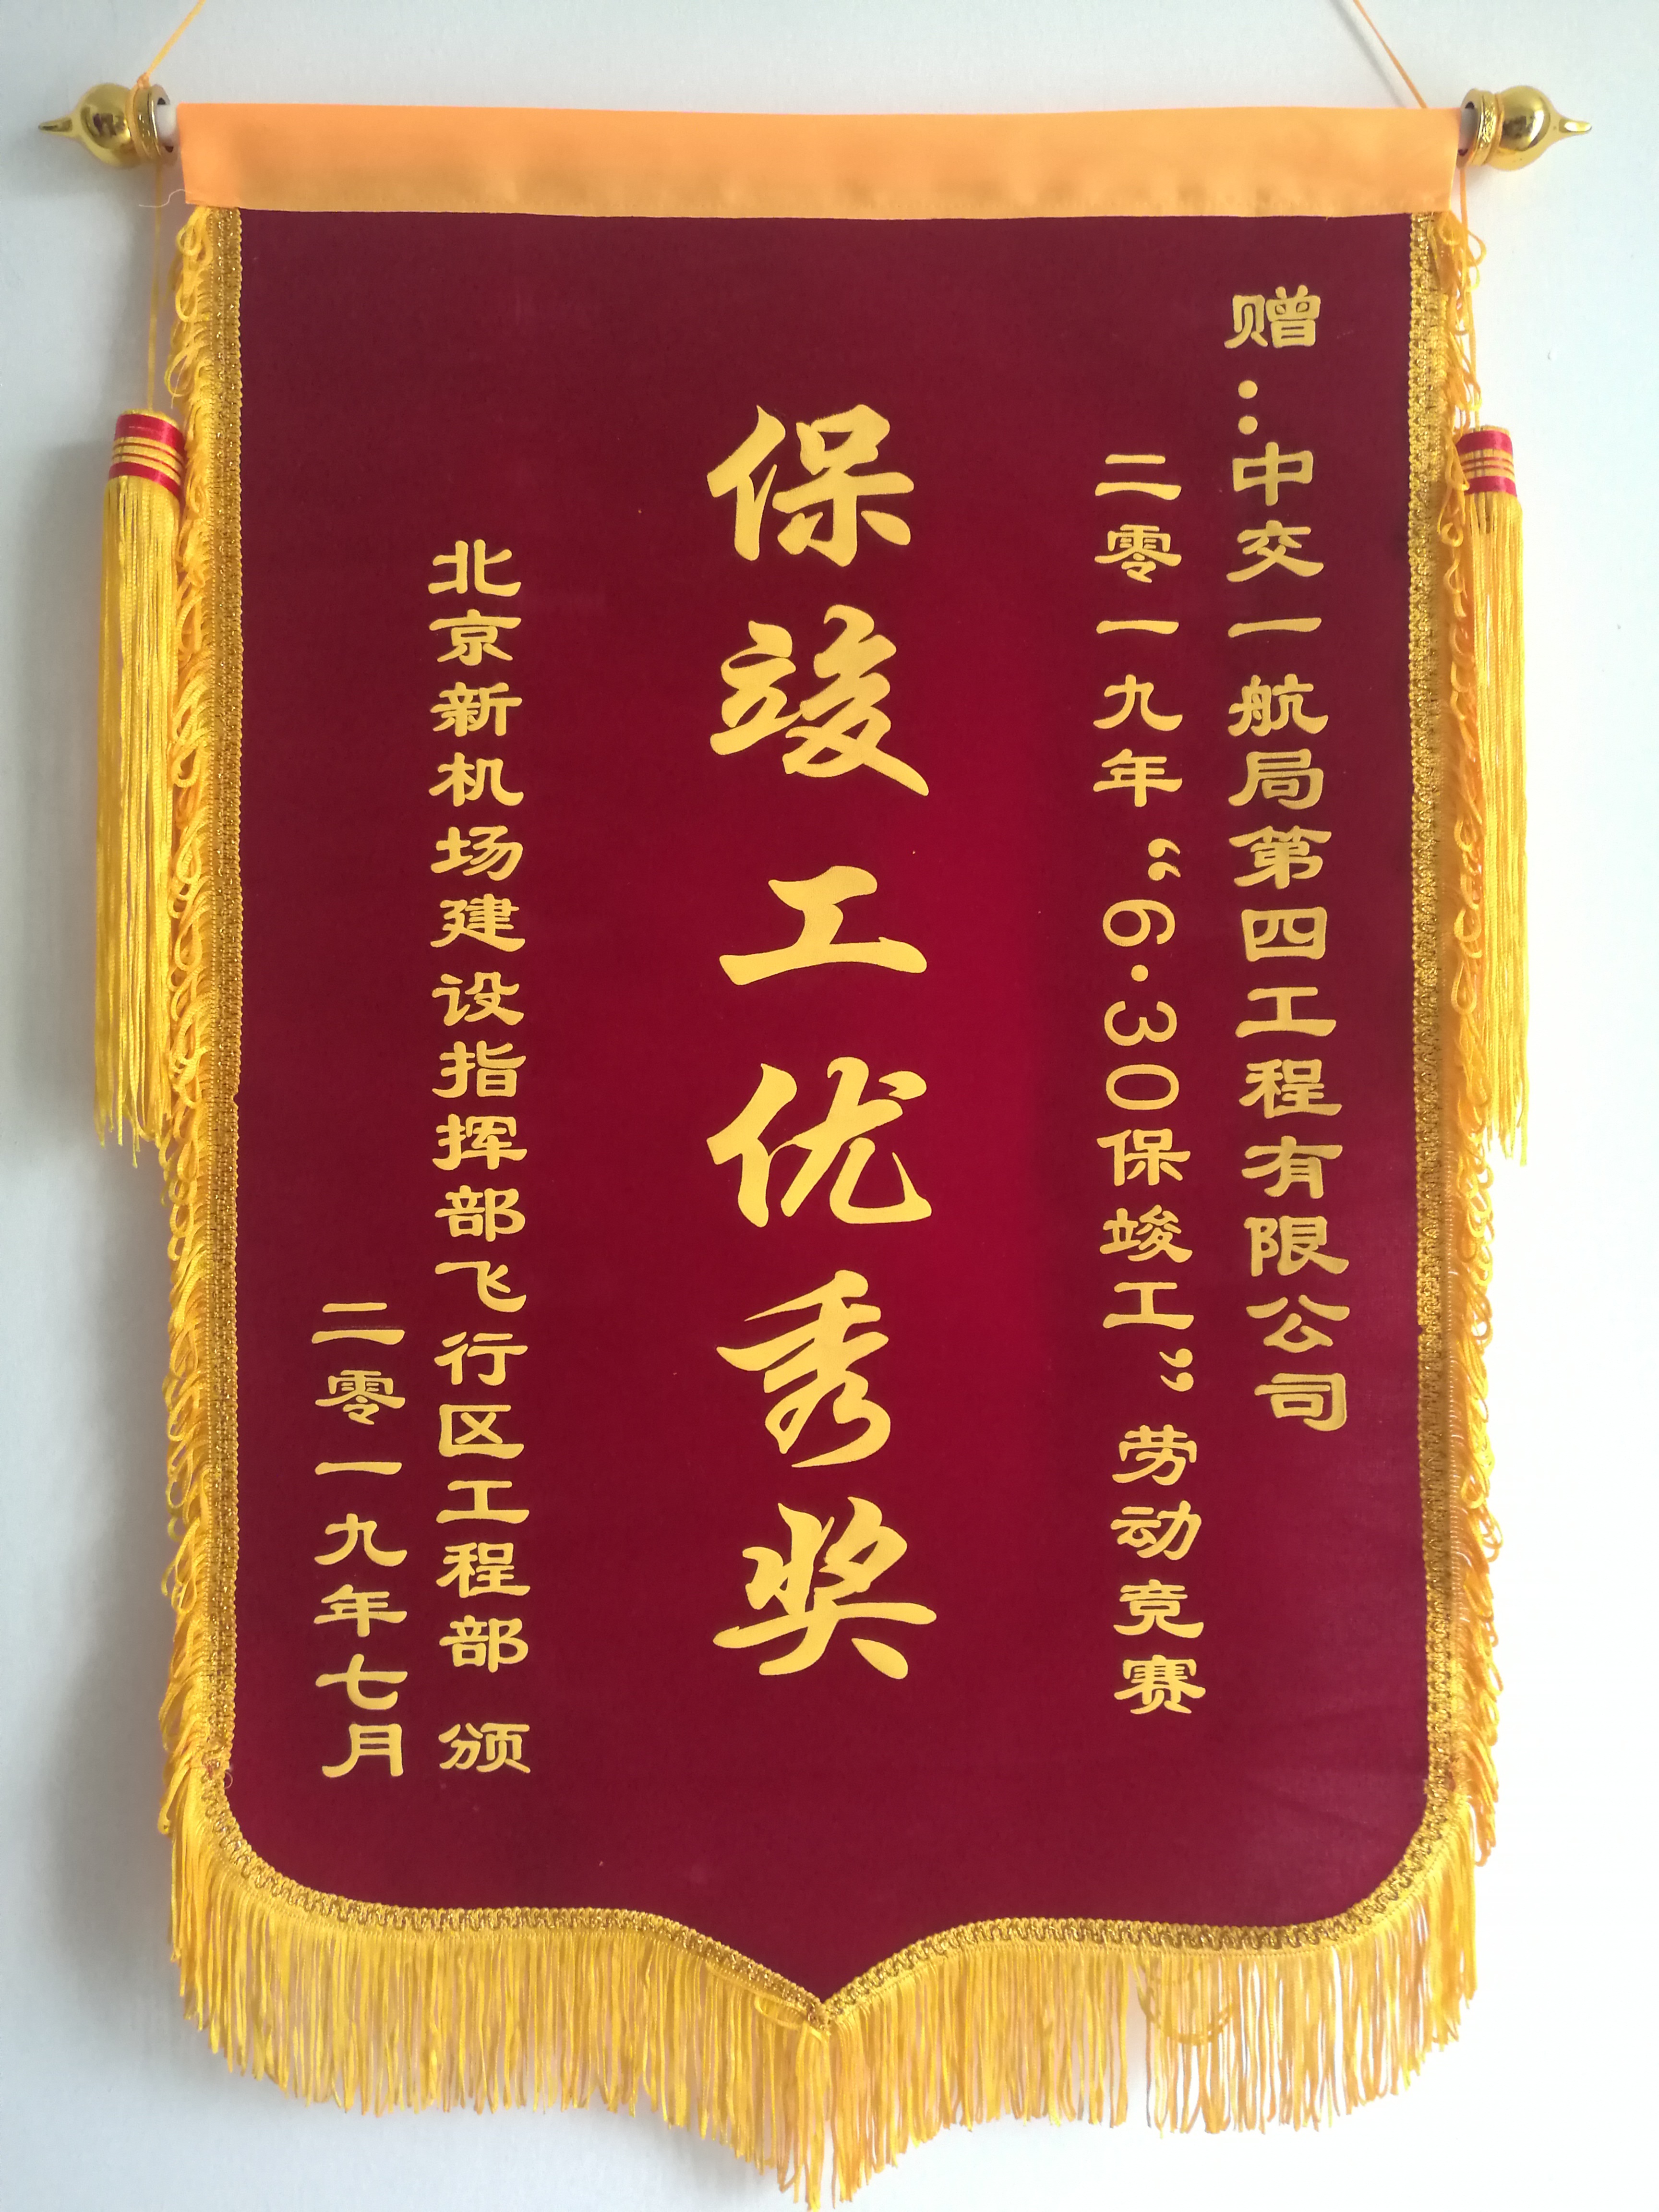 赠：中交一航局第四工程有限公司
二零一九年“6·30保竣工”劳动竞赛
保竣工优秀奖
北京新机场建设指挥部飞行区工程部 颁
二零一九年七月